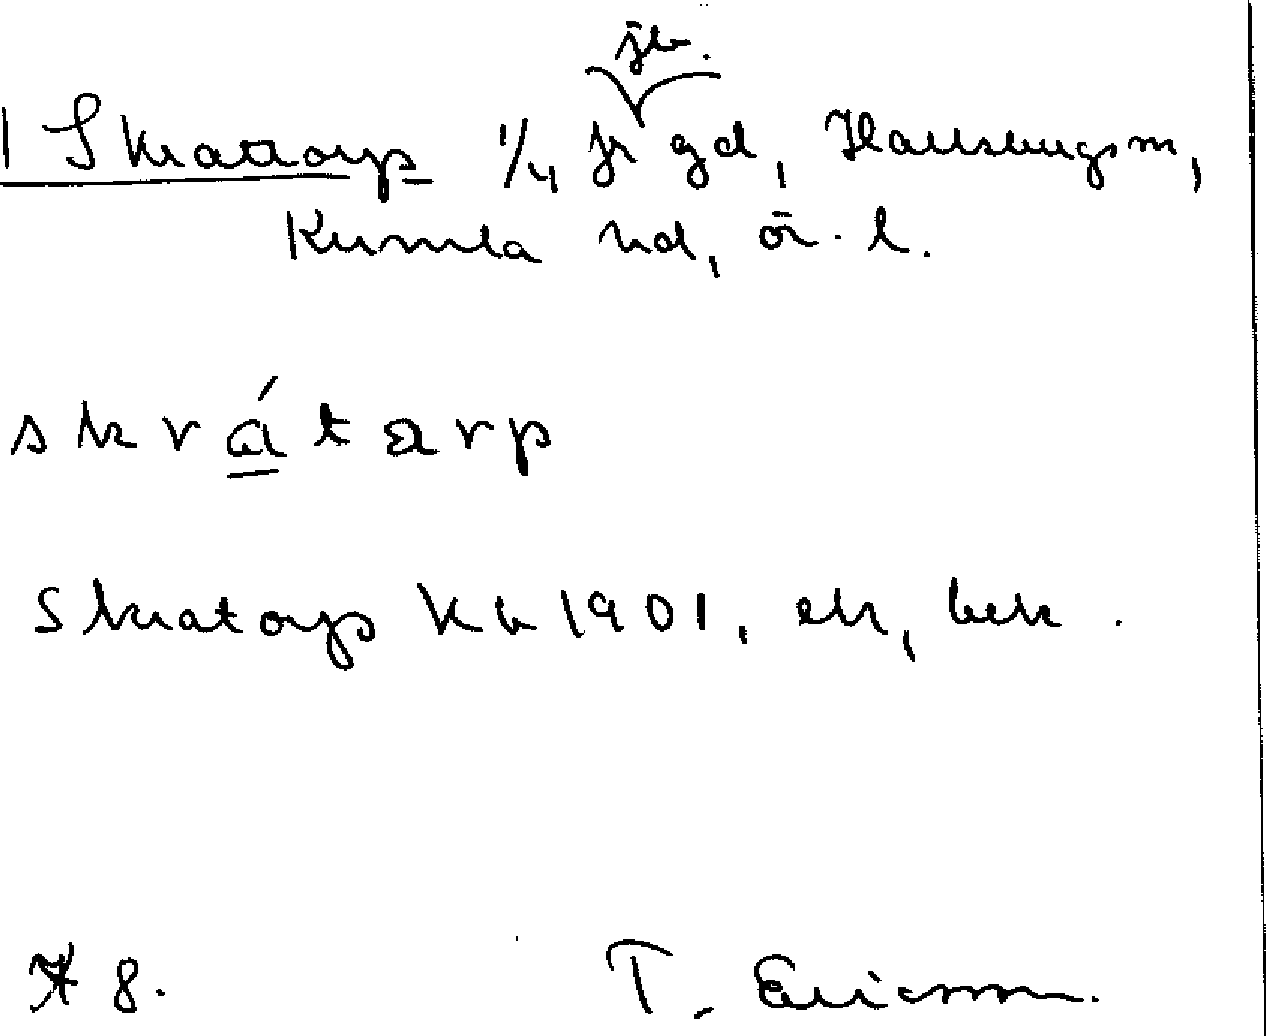 jb.
1 Skrattorp 1/4 fr gd, Hallsbergs sn,
Kumla hd, ör. l.
skrátarp
Skratorp Kb 1901, ek, bek.
8.
T. Ericsson.